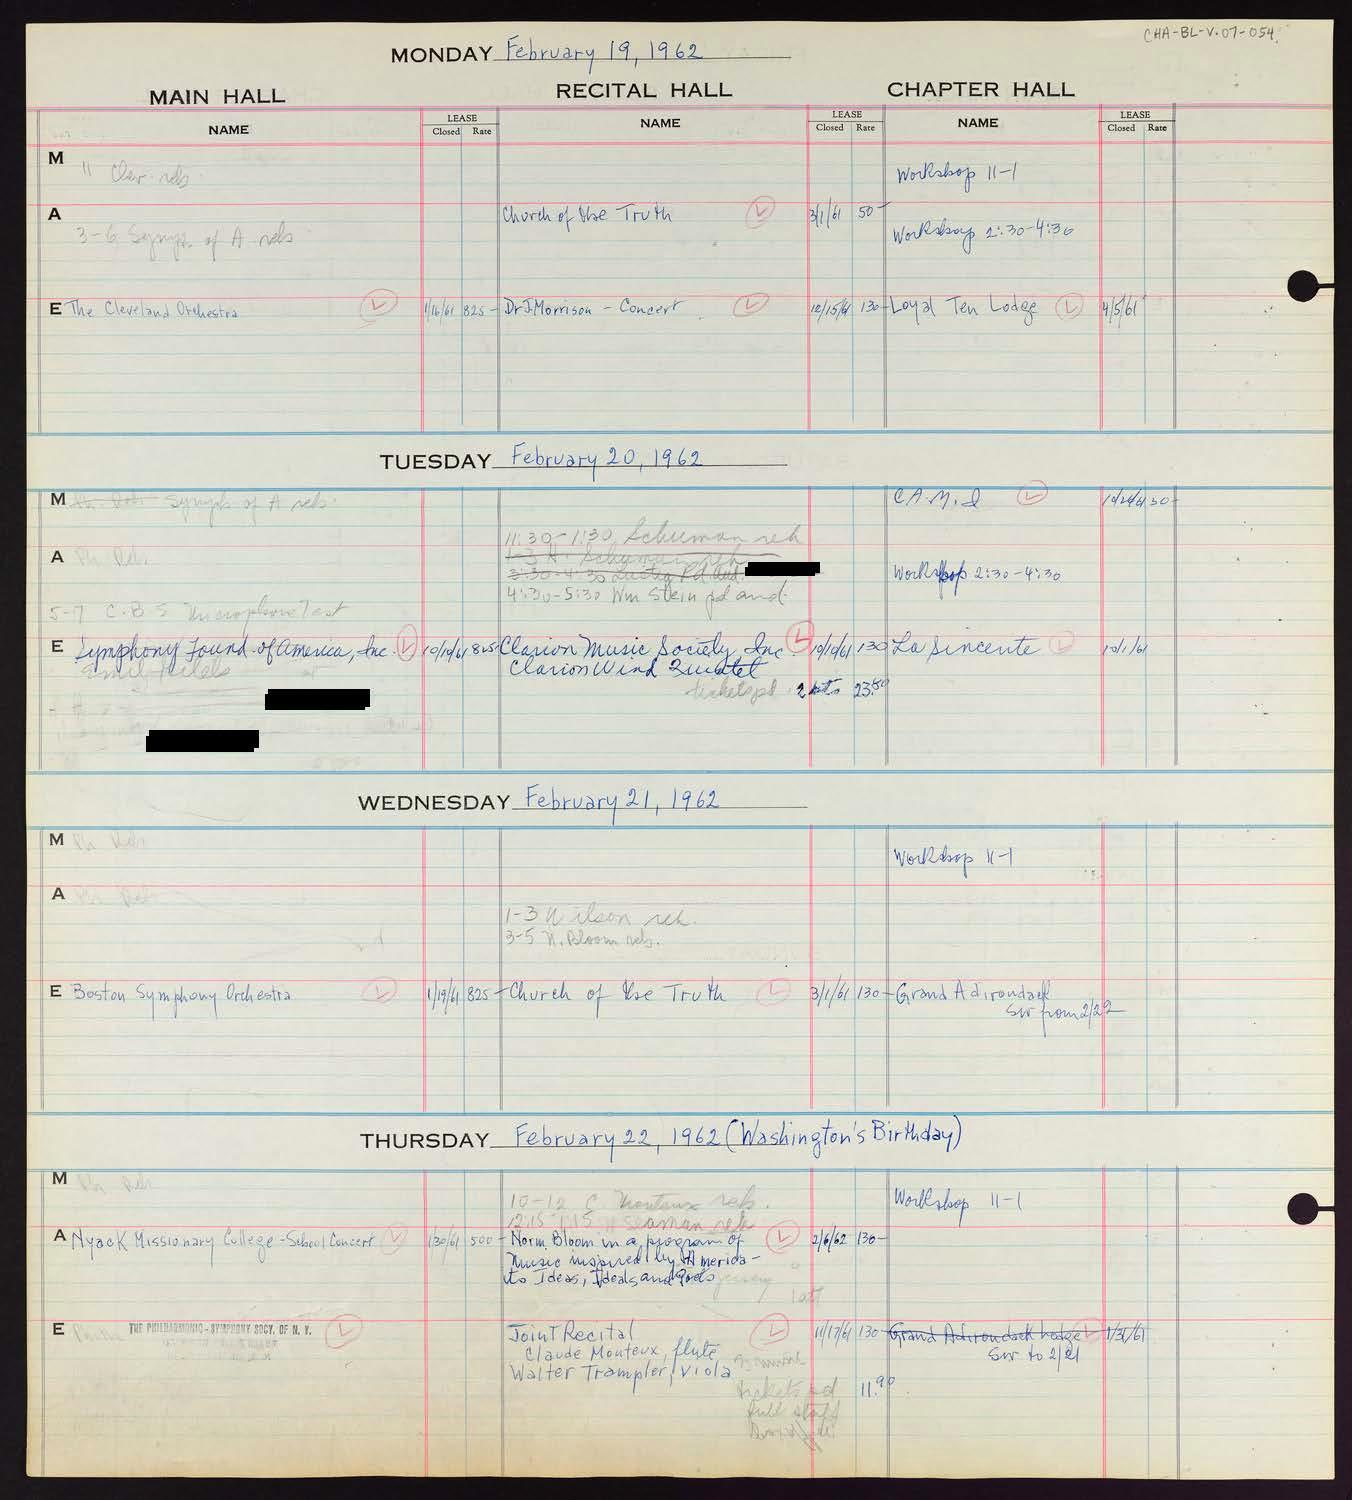 CHA-BL-V.07-054
MONDAY February 19, 1962
MAIN HALL RECITAL HALL CHAPTER HALL
NAME LEASE Closed Rate NAME LEASE Closed Rate NAME LEASE Closed Rate
M 11 Clev. reh. Workshop 11-1
A Church of the Truth 3/1/61 50-
3-6 Symph. of A rehs Workshop 2:30-4:30
E The Cleveland Orchestra 1/16/61 825- Dr J. Morrison - Concert 12/15/61 130- Loyal Ten Lodge 4/5/61
TUESDAY February 20, 1962
M Symph of A reh. C.A.M.I 10/24/61 30-
11:30-1:30 Schuman reh
A Ph Reh. 1-3 H. Schuman reh
3:30-4:30 Pd Aud. Workshop 2:30-4:30
4:30-5:30 Wm Stein pd aud.
5-7 C.B.S Microphone Test
E Symphony Found. of America, Inc. 10/10/61 825- Clarion Music Society, Inc 10/10/61 130 La Sincerite 10/1/61
Emil Gilels Clarion Wind Quintet
tickets pd 23.80
WEDNESDAY February 21, 1962
M Ph Reh. Workshop 11-1
A Ph Reh.
1-3 Wilson reh.
3-5 N. Bloom reh.
E Boston Symphony Orchestra 1/19/61 825- Church of the Truth 3/1/61 130- Grand Adirondack
sw from 2/22
THURSDAY February 22, 1962 (Washington's Birthday)
M Ph Reh. Workshop 11-1
10-12 C. Monteux reh.
12:15 1:15 Seaman reh
A Nyack Missionary College - School Concert 1/30/61 500- Norm. Bloom in a program of 2/6/62 130-
Music inspired by America-
its Ideas, Ideals and Gods
E THE PHILHARMONIC-SYMPHONY SOCY. OF N. Y. Joint Recital 11/17/61 130- Grand Adirondack Lodge 1/31/61
Claude Monteux, flute sw to 2/21
Walter Trampler, viola
tickets pd 11.90
full staff